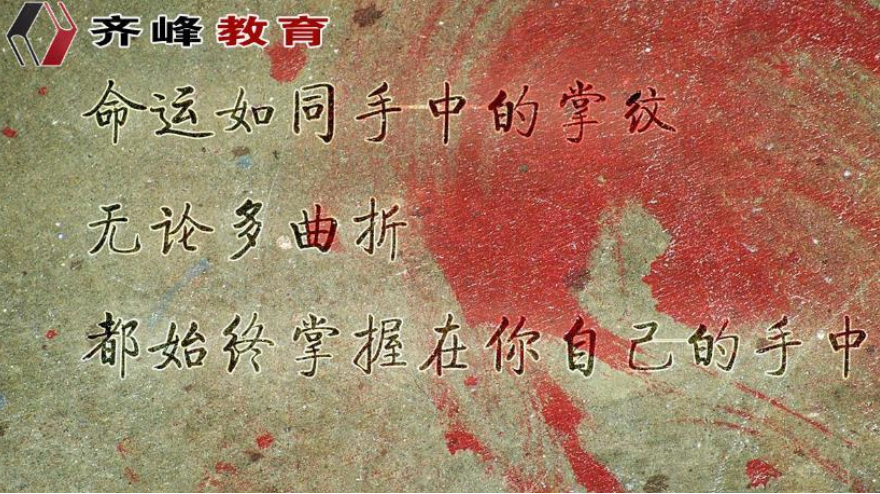 齐峰教育
命运如同手中的掌纹
无论多曲折
都始终掌握在你自己的手中